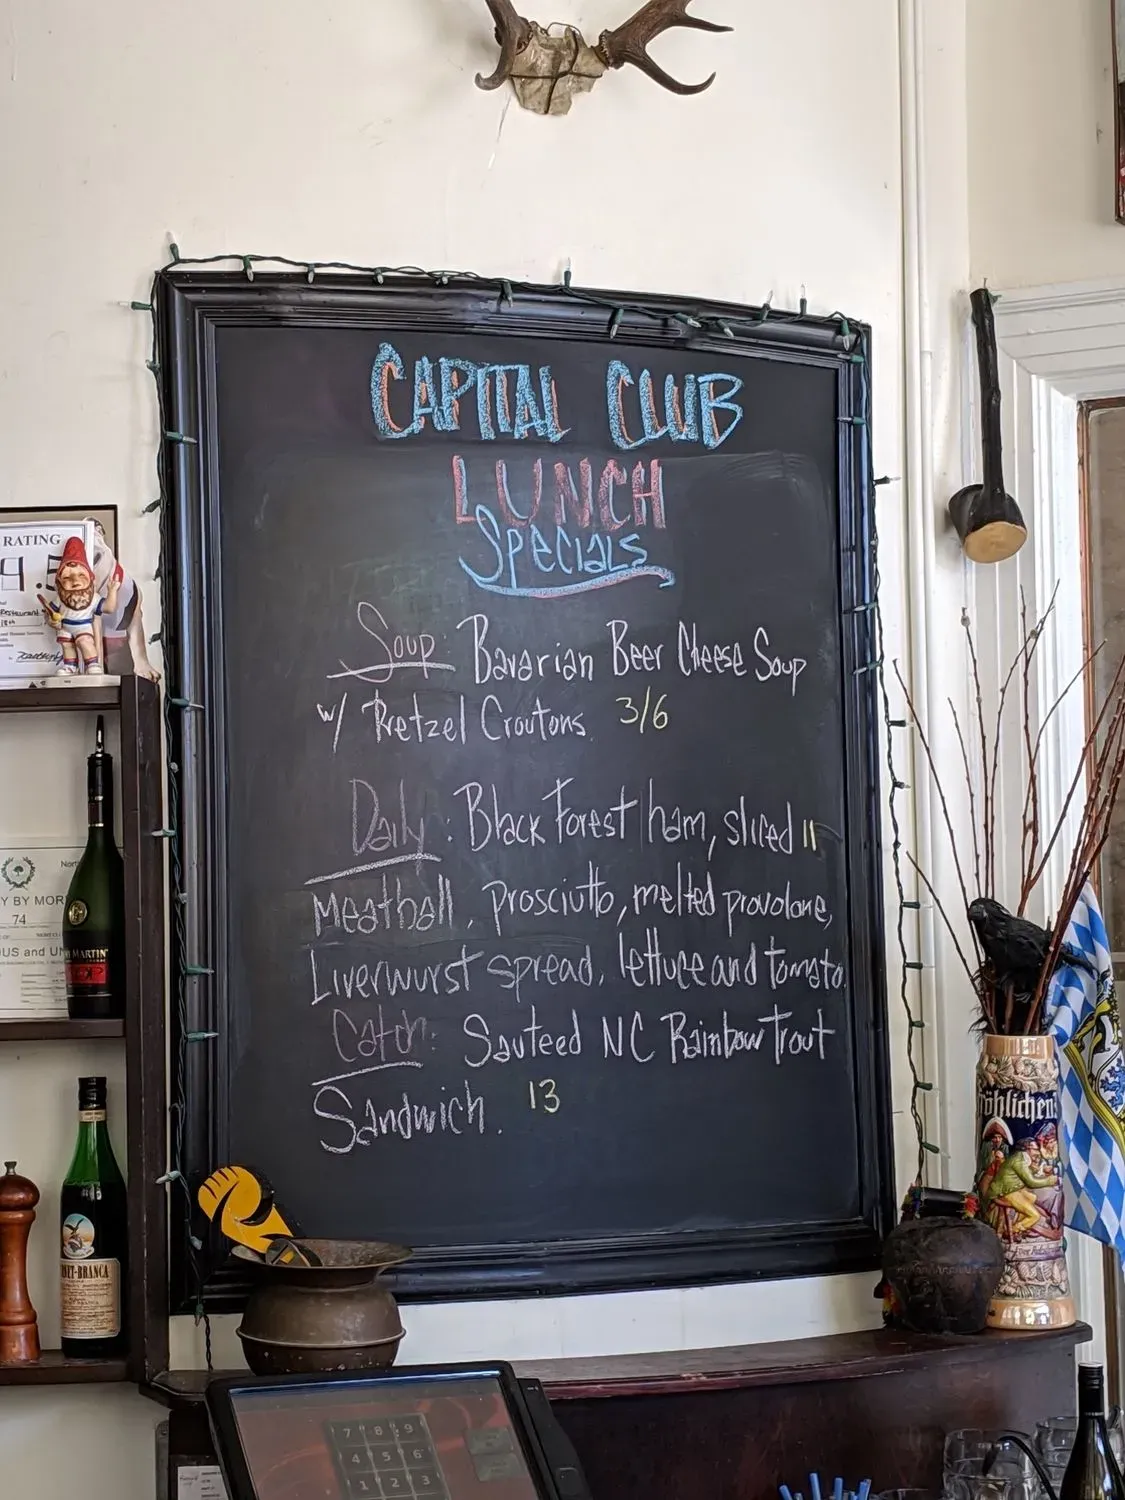 CAPITAL CLUB
LUNCH
Specials
Soup: Bavarian Beer Cheese Soup
w/ Pretzel Croutons. 3/6
Daily: Black Forest ham, sliced 11
Meatball, prosciutto, melted provolone,
Liverwurst spread, lettuce and tomato.
Catch: Sauteed NC Rainbow Trout
Sandwich. 13
RATING
Restaurant
74
MARTIN
7 8 9
4 5 6
1 2 3